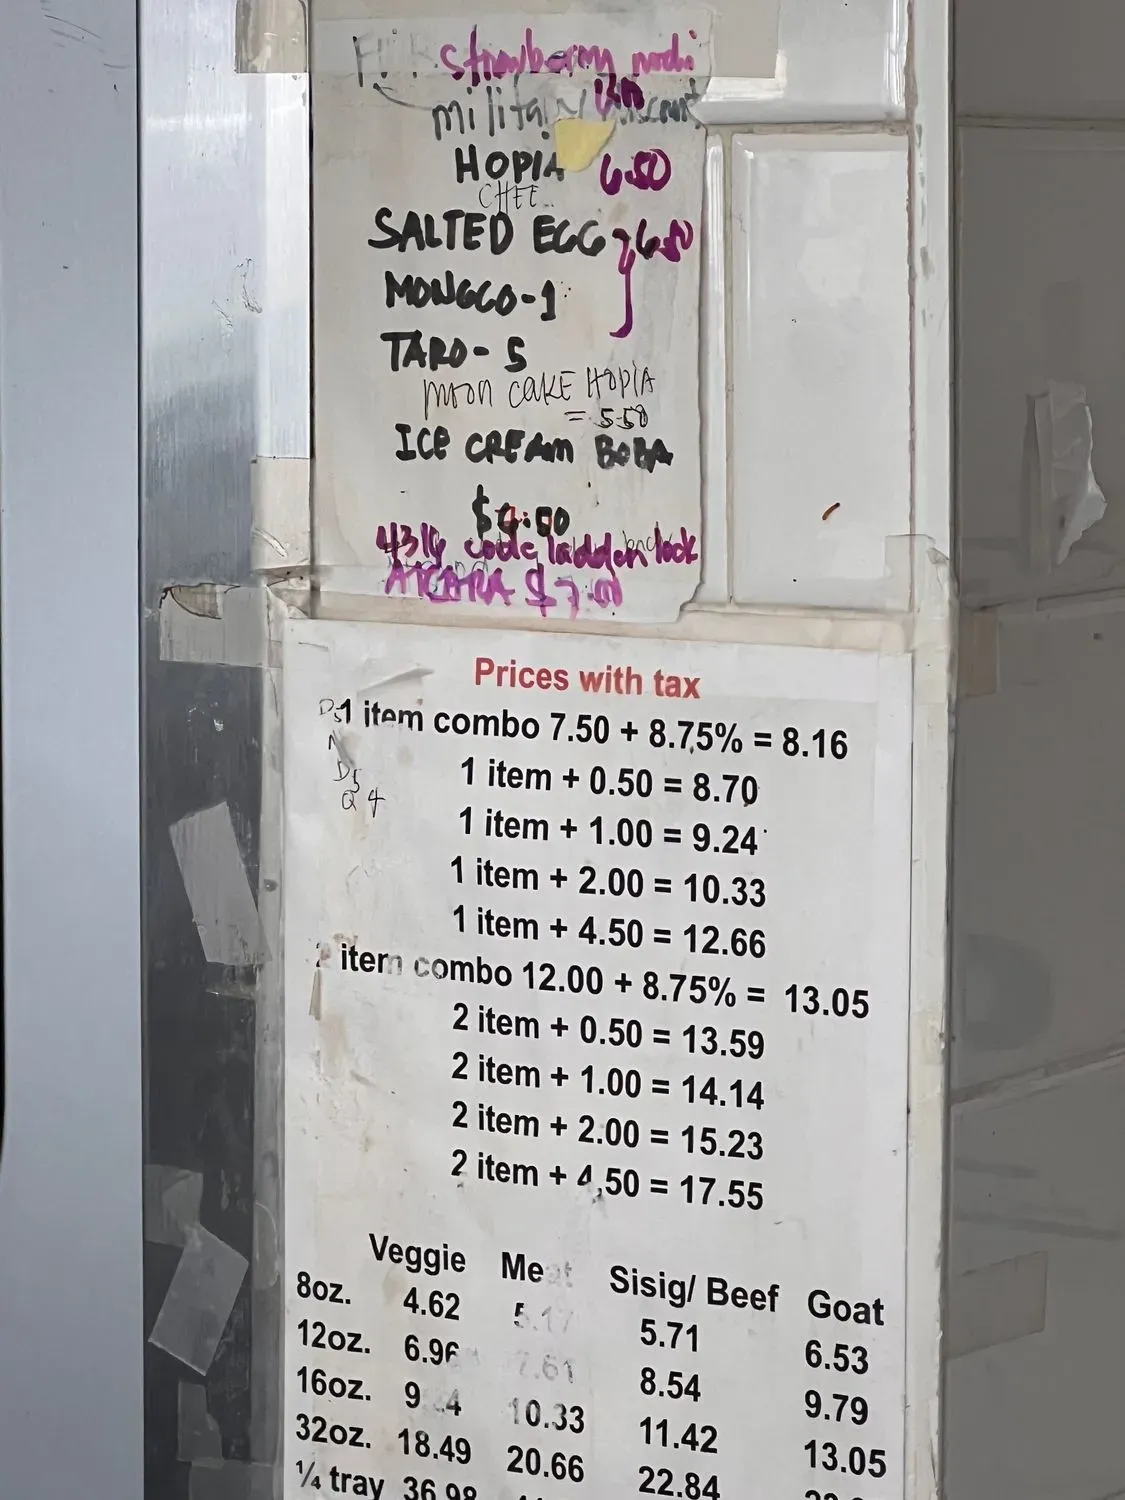 strawberry mochi
military discount
HOPIA 6.50
CHEE..
SALTED EGG 6.50
MONGGO-1
TARO- 5
moon CAKE HOPIA
= 5.50
ICE CREAM BOBA
$6.00
4314 code ladder lock
ATCHARA $7.00
Prices with tax
1 item combo 7.50 + 8.75% = 8.16
1 item + 0.50 = 8.70
1 item + 1.00 = 9.24
1 item + 2.00 = 10.33
1 item + 4.50 = 12.66
D5
N
D5
Q 4
2 item combo 12.00 + 8.75% = 13.05
2 item + 0.50 = 13.59
2 item + 1.00 = 14.14
2 item + 2.00 = 15.23
2 item + 4.50 = 17.55
Veggie Meat Sisig/ Beef Goat
8oz. 4.62 5.17 5.71 6.53
12oz. 6.96 7.61 8.54 9.79
16oz. 9 4 10.33 11.42 13.05
32oz. 18.49 20.66 22.84
1/4 tray 36.98